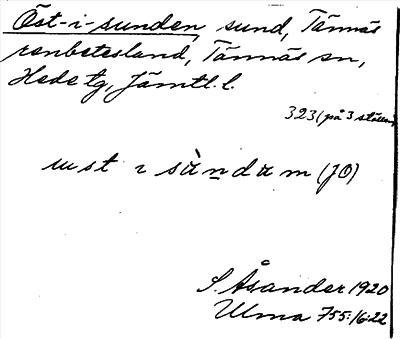 Öst-i-sunden, sund, Tännäs
renbetesland, Tännäs sn,
Hede tg, Jämtl. l.
323 (på 3 ställen)
ɯst ɩ sùndɑm (JÖ)
S. Åsander 1920
Ulma 755:16:22